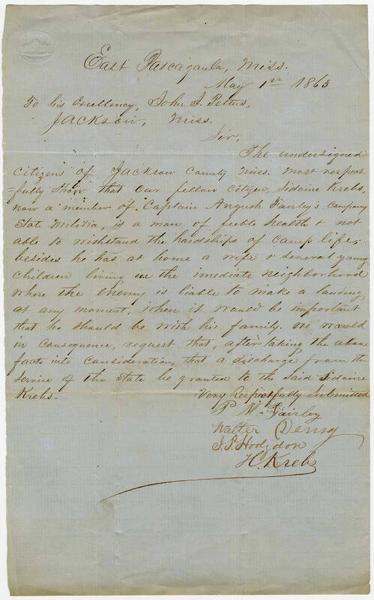 East Pascagoula, Miss.
May 1st 1863
To his Excellency, John J. Pettus,
Jackson, Miss.
Sir,
The undersigned
citizens of Jackson County Miss. most respect
-fully show that our fellow citizen, Sidoine Krebs,
now a member of Captain Angush Fairly's Company
State Militia, is a man of feeble health & not
able to withstand the hardships of camp life,
besides he has at home a wife & several young
children living in the imediate neighborhood
where the enemy is liable to make a landing
at any moment, when it would be important
that he should be with his family. We would
in consequence, request that, after taking the above
facts into consideration, that a discharge from the
service of the State be granted to the said Sidoine
Krebs.
Very Respectfully submitted
P. W. Fairley
Walter Denny
S. S. Hodgdon
H. Krebs